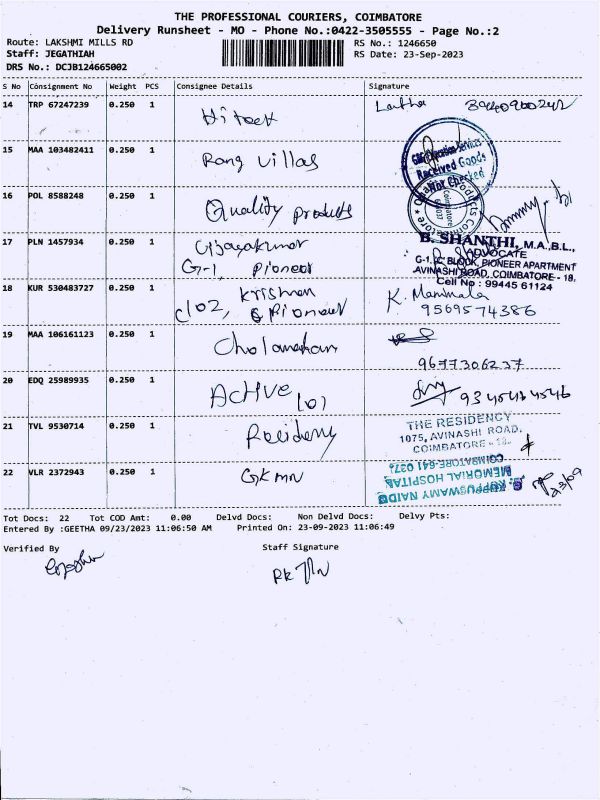 THE PROFESSIONAL COURIERS, COIMBATORE
Delivery Runsheet - MO - Phone No.:0422-3505555 - Page No.:2
Route: LAKSHMI MILLS RD RS No.: 1246650
Staff: JEGATHIAH RS Date: 23-Sep-2023
DRS No.: DCJB124665002
S No Consignment No Weight PCS Consignee Details Signature
14 TRP 67247239 0.250 1 Hi teek Latha
15 MAA 103482411 0.250 1 Rang villas
Received Goods
Not Checked
16 POL 8588248 0.250 1 Quality products
17 PLN 1457934 0.250 1 Vijayakumar
G-1, Pioneer
B. SHANTHI, M.A.,B.L.,
ADVOCATE
G-1, 'C' BLOCK, PIONEER APARTMENT
AVINASHI ROAD, COIMBATORE - 18.
Cell No : 99445 61124
18 KUR 530483727 0.250 1 Krishnan
C102, Pioneer
K. Manimala
9569574386
19 MAA 106161123 0.250 1 Cholamandan
9677306237
20 EDQ 25989935 0.250 1 Active (0) 9345454546
21 TVL 9530714 0.250 1 Residency
THE RESIDENCY
1075, AVINASHI ROAD,
COIMBATORE - 18.
22 VLR 2372943 0.250 1 GKMN
G. KUPPUSWAMY NAIDU
MEMORIAL HOSPITAL
COIMBATORE-641 037
23/09
Tot Docs: 22 Tot COD Amt: 0.00 Delvd Docs: Non Delvd Docs: Delvy Pts:
Entered By :GEETHA 09/23/2023 11:06:50 AM Printed On: 23-09-2023 11:06:49
Verified By Staff Signature